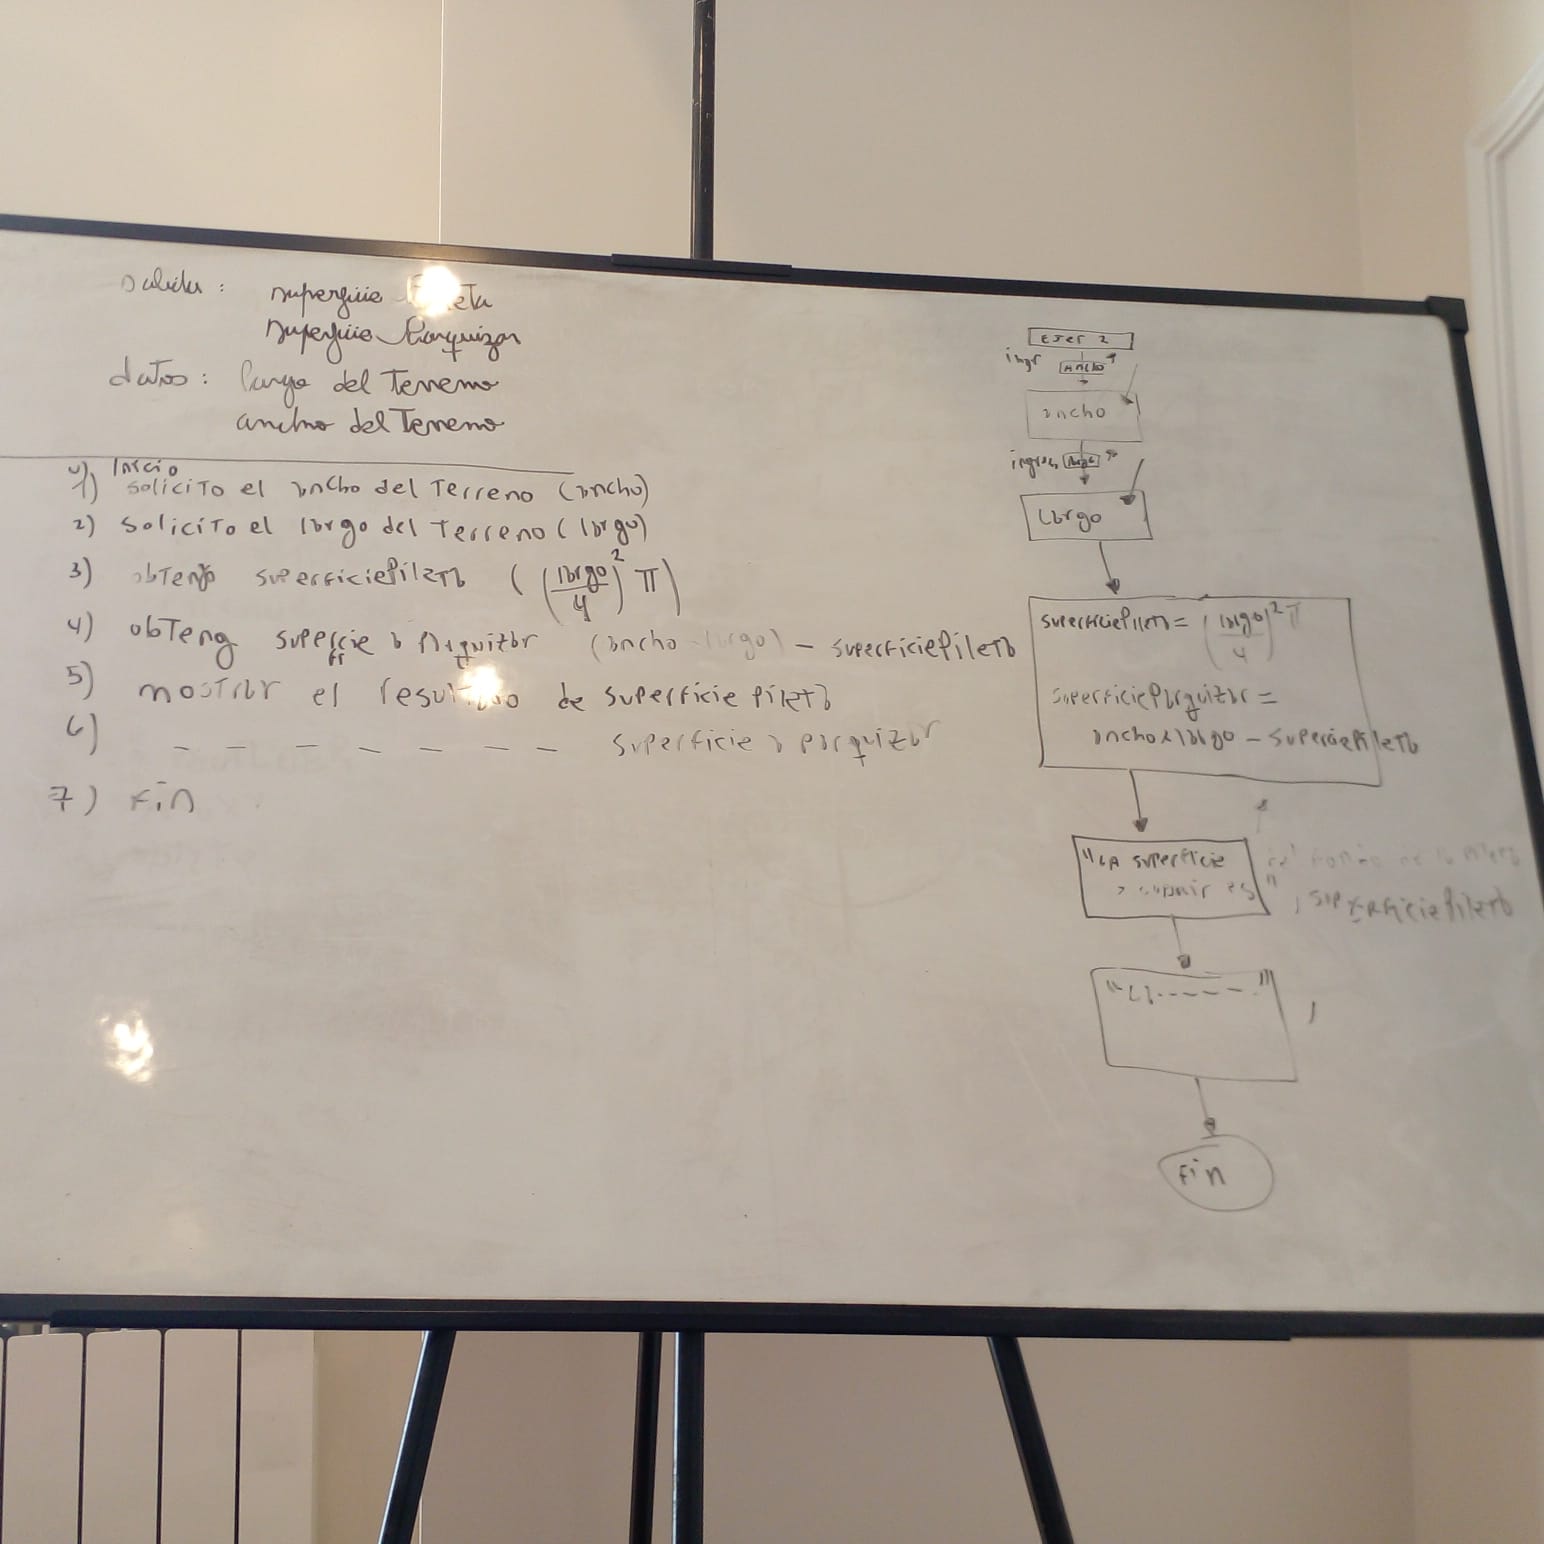 salida : superficie
superficie Parquizar
datos : largo del Terreno
ancho del Terreno
0) Inicio
1) solicito el ancho del Terreno (ancho)
2) solicito el largo del Terreno (largo)
3) obtengo superficiePileta ((largo/4)² π)
4) obteng superficie a Parquizar (ancho largo) - superficiePileta
5) mostrar el resultado de superficie pileta
6) _ _ _ _ _ _ _ superficie a parquizar
7) Fin
Ejer 2
ingr ancho
ancho
largo
Largo
superficiePileta = (largo/4)² π
superficieParquizar =
ancho x largo - superficiePileta
"La superficie
a cubrir es" , superficiePileta
"La ------" ,
Fin